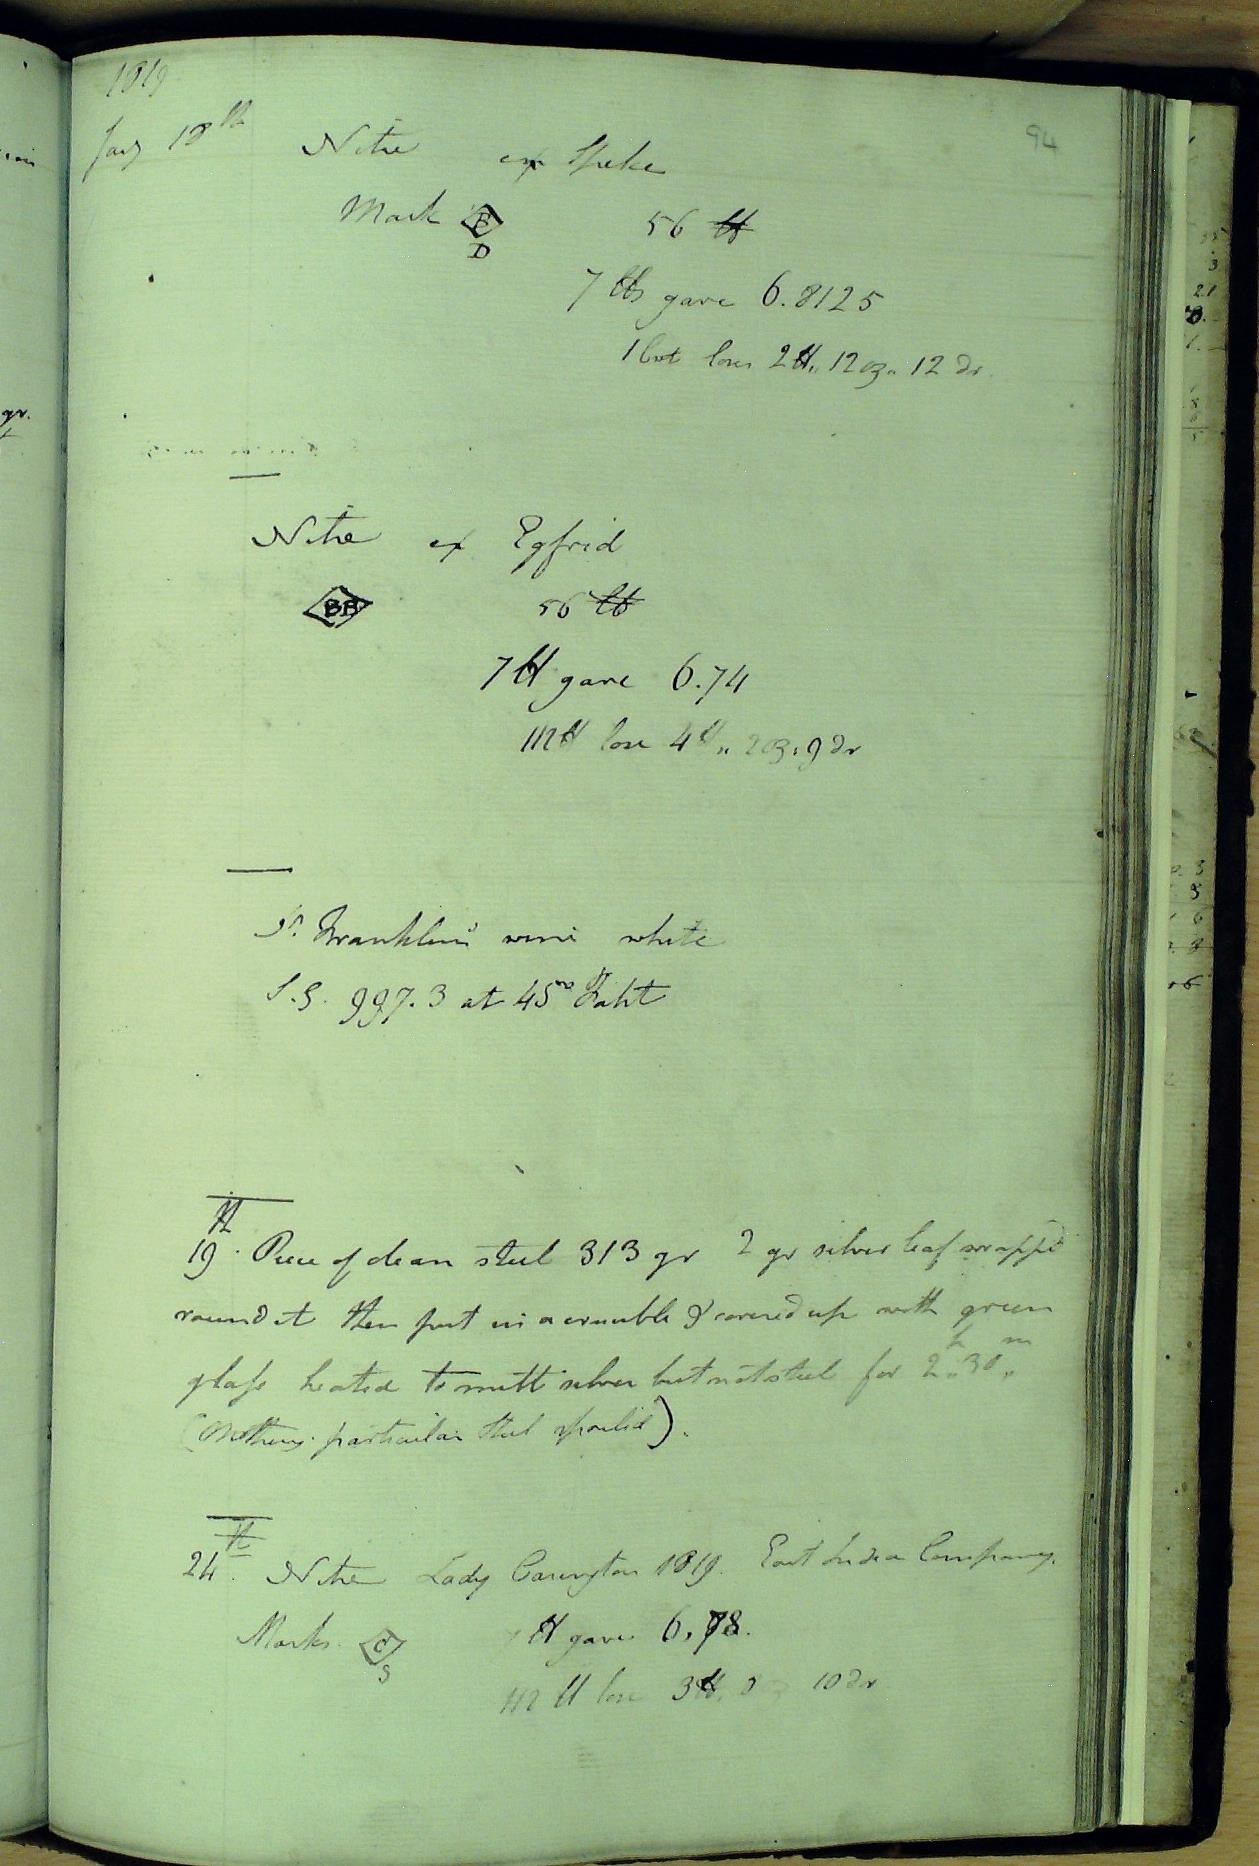 1819
94
Jany 18th Nitre ex Speke
Mark E D 56 lb
7 lbs gave 6.8125
1 Cwt loses 2 lb,, 12 oz,, 12 dr.
Nitre ex Egfrid
BB 56 lb
7 lb gave 6.74
112 lb lose 4 lb,, 2 oz,, 9 dr
Dr. Franklin's wine white
S.G. 997.3 at 45° Faht
19th. Piece of clean steel 313 gr 2 gr silver leaf wrapped
round it then put in a crucible & covered up with green
glass heated to melt silver but not steel for 2h.. 30m..
(Nothing particular steel spoiled).
24th. Nitre Lady Carington 1819. East India Company.
Marks. C S 7 lb gave 6.78.
112 lb lose 3 lb, 8 oz 10 dr